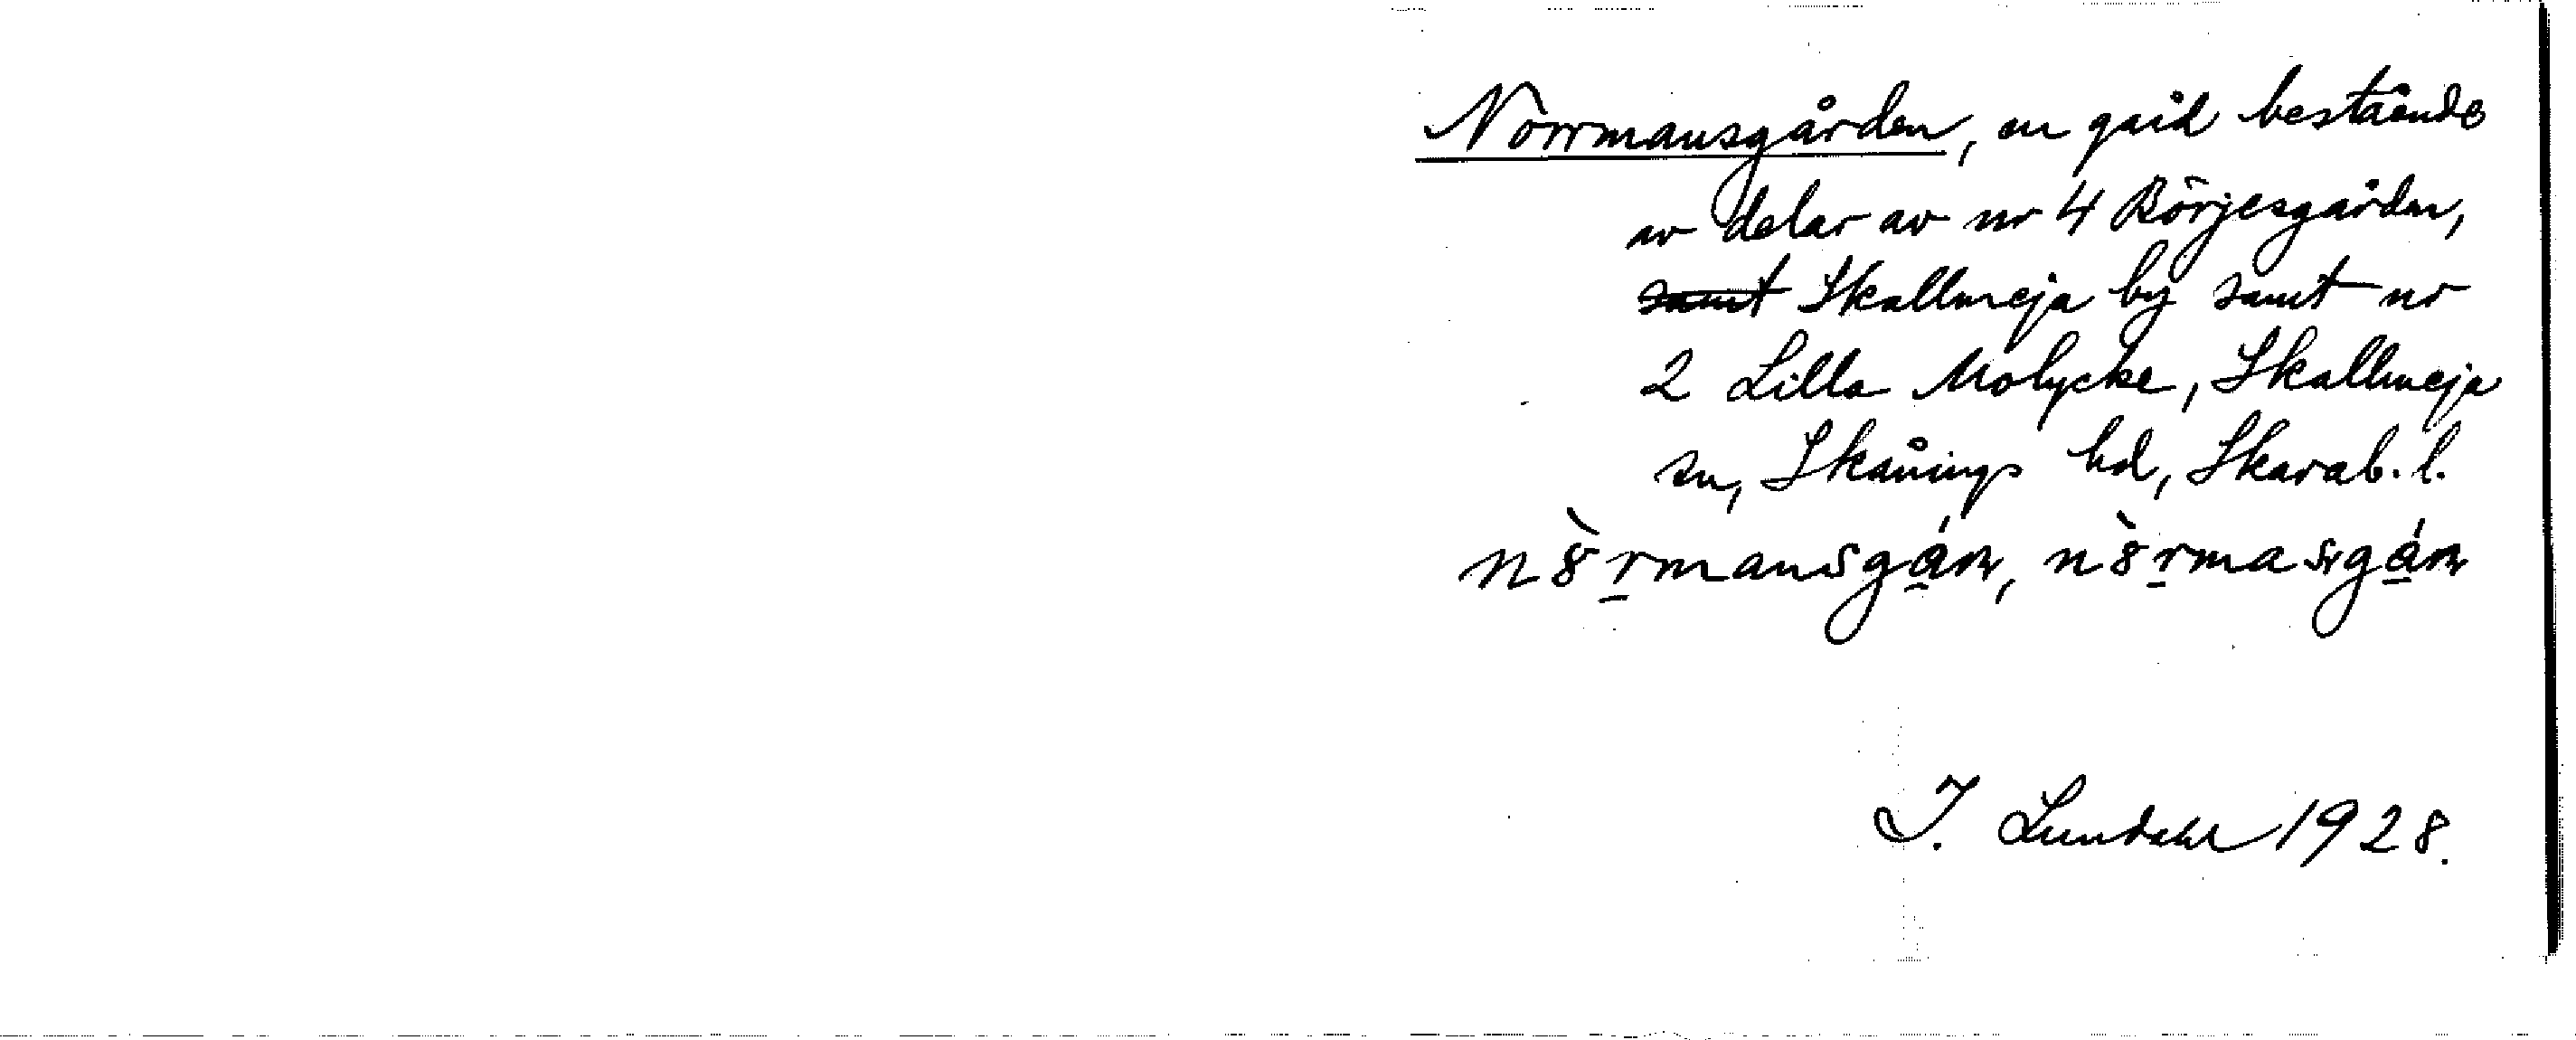 Norrmansgården, en gård bestående
av delar av nr 4 Börjesgården,
samt Skallmeja by samt nr
2 Lilla Molycke, Skallmeja
sn, Skånings hd, Skarab. l.
I. Lundahl 1928.